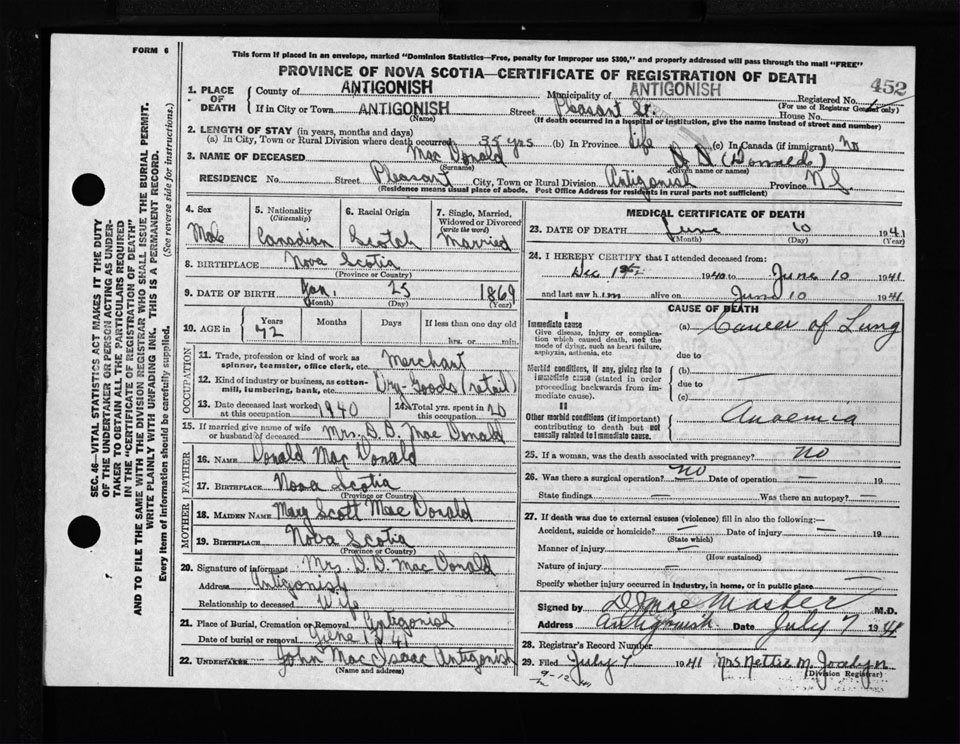 FORM 6
This form if placed in an envelope, marked "Dominion Statistics—Free, penalty for improper use $300," and properly addressed will pass through the mail "FREE"
PROVINCE OF NOVA SCOTIA—CERTIFICATE OF REGISTRATION OF DEATH
452
1. PLACE OF DEATH
County of ANTIGONISH Municipality of ANTIGONISH Registered No.
(For use of Registrar General only)
If in City or Town ANTIGONISH Street Pleasant St. House No.
(Name) (If death occurred in a hospital or institution, give the name instead of street and number)
2. LENGTH OF STAY (in years, months and days)
(a) In City, Town or Rural Division where death occurred 35 yrs (b) In Province life (c) In Canada (if immigrant) no
3. NAME OF DECEASED Mac Donald D D (Donald)
(Surname) (Given name or names)
RESIDENCE No. Street Pleasant City, Town or Rural Division Antigonish Province N S.
(Residence means usual place of abode. Post Office Address for residents in rural parts not sufficient)
4. Sex Male
5. Nationality (Citizenship) Canadian
6. Racial Origin Scotch
7. Single, Married, Widowed or Divorced (write the word) Married
8. BIRTHPLACE Nova Scotia
(Province or Country)
9. DATE OF BIRTH Jan. 25 1869
(Month) (Day) (Year)
10. AGE in Years 72 Months Days If less than one day old
hrs. or min.
OCCUPATION
11. Trade, profession or kind of work as spinner, teamster, office clerk, etc. Merchant
12. Kind of industry or business, as cotton-mill, lumbering, bank, etc. Dry-Goods (retail)
13. Date deceased last worked at this occupation 1940 14. Total yrs. spent in this occupation
15. If married give name of wife or husband of deceased Mrs. D. D. Mac Donald
FATHER
16. NAME Donald Mac Donald
17. BIRTHPLACE Nova Scotia
(Province or Country)
MOTHER
18. MAIDEN NAME Mary Scott Mac Donald
19. BIRTHPLACE Nova Scotia
(Province or Country)
20. Signature of informant Mrs. D. D. Mac Donald
Address Antigonish
Relationship to deceased Wife
21. Place of Burial, Cremation or Removal Antigonish
Date of burial or removal 41
22. UNDERTAKER John Mac Isaac Antigonish
(Name and address)
MEDICAL CERTIFICATE OF DEATH
23. DATE OF DEATH June 10 1941
(Month) (Day) (Year)
24. I HEREBY CERTIFY that I attended deceased from:
Dec 1940 to June 10 1941
and last saw him alive on June 10 1941
CAUSE OF DEATH
I
Immediate cause (a) Cancer of Lung
Give disease, injury or complication which caused death, not the mode of dying, such as heart failure, asphyxia, asthenia, etc
due to
Morbid conditions, if any, giving rise to immediate cause (stated in order proceeding backwards from immediate cause).
(b) —
due to
(c)
II
Other morbid conditions (if important) contributing to death but not causally related to immediate cause.
Anaemia
25. If a woman, was the death associated with pregnancy? No
26. Was there a surgical operation? No Date of operation — 19
State findings — Was there an autopsy? —
27. If death was due to external causes (violence) fill in also the following:—
Accident, suicide or homicide? — Date of injury 19
(State which)
Manner of injury —
(How sustained)
Nature of injury —
Specify whether injury occurred in industry, in home, or in public place —
Signed by D J Mac Master M.D.
Address Antigonish Date July 7 1941
28. Registrar's Record Number
29. Filed July 7 1941 Mrs Nettie M. Jocelyn
(Division Registrar)
9-12
SEC. 46—VITAL STATISTICS ACT MAKES IT THE DUTY
OF THE UNDERTAKER OR PERSON ACTING AS UNDER-
TAKER TO OBTAIN ALL THE PARTICULARS REQUIRED
IN THE "CERTIFICATE OF REGISTRATION OF DEATH"
AND TO FILE THE SAME WITH THE DIVISION REGISTRAR WHO SHALL ISSUE THE BURIAL PERMIT.
WRITE PLAINLY WITH UNFADING INK. THIS IS A PERMANENT RECORD.
Every item of information should be carefully supplied. (See reverse side for instructions.)